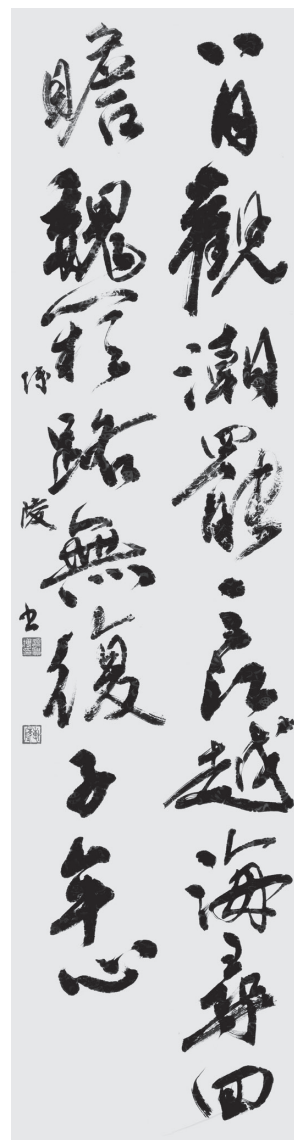 八月觀潮罷三江越海尋回
瞻魏闕路無復子牟心
陵书